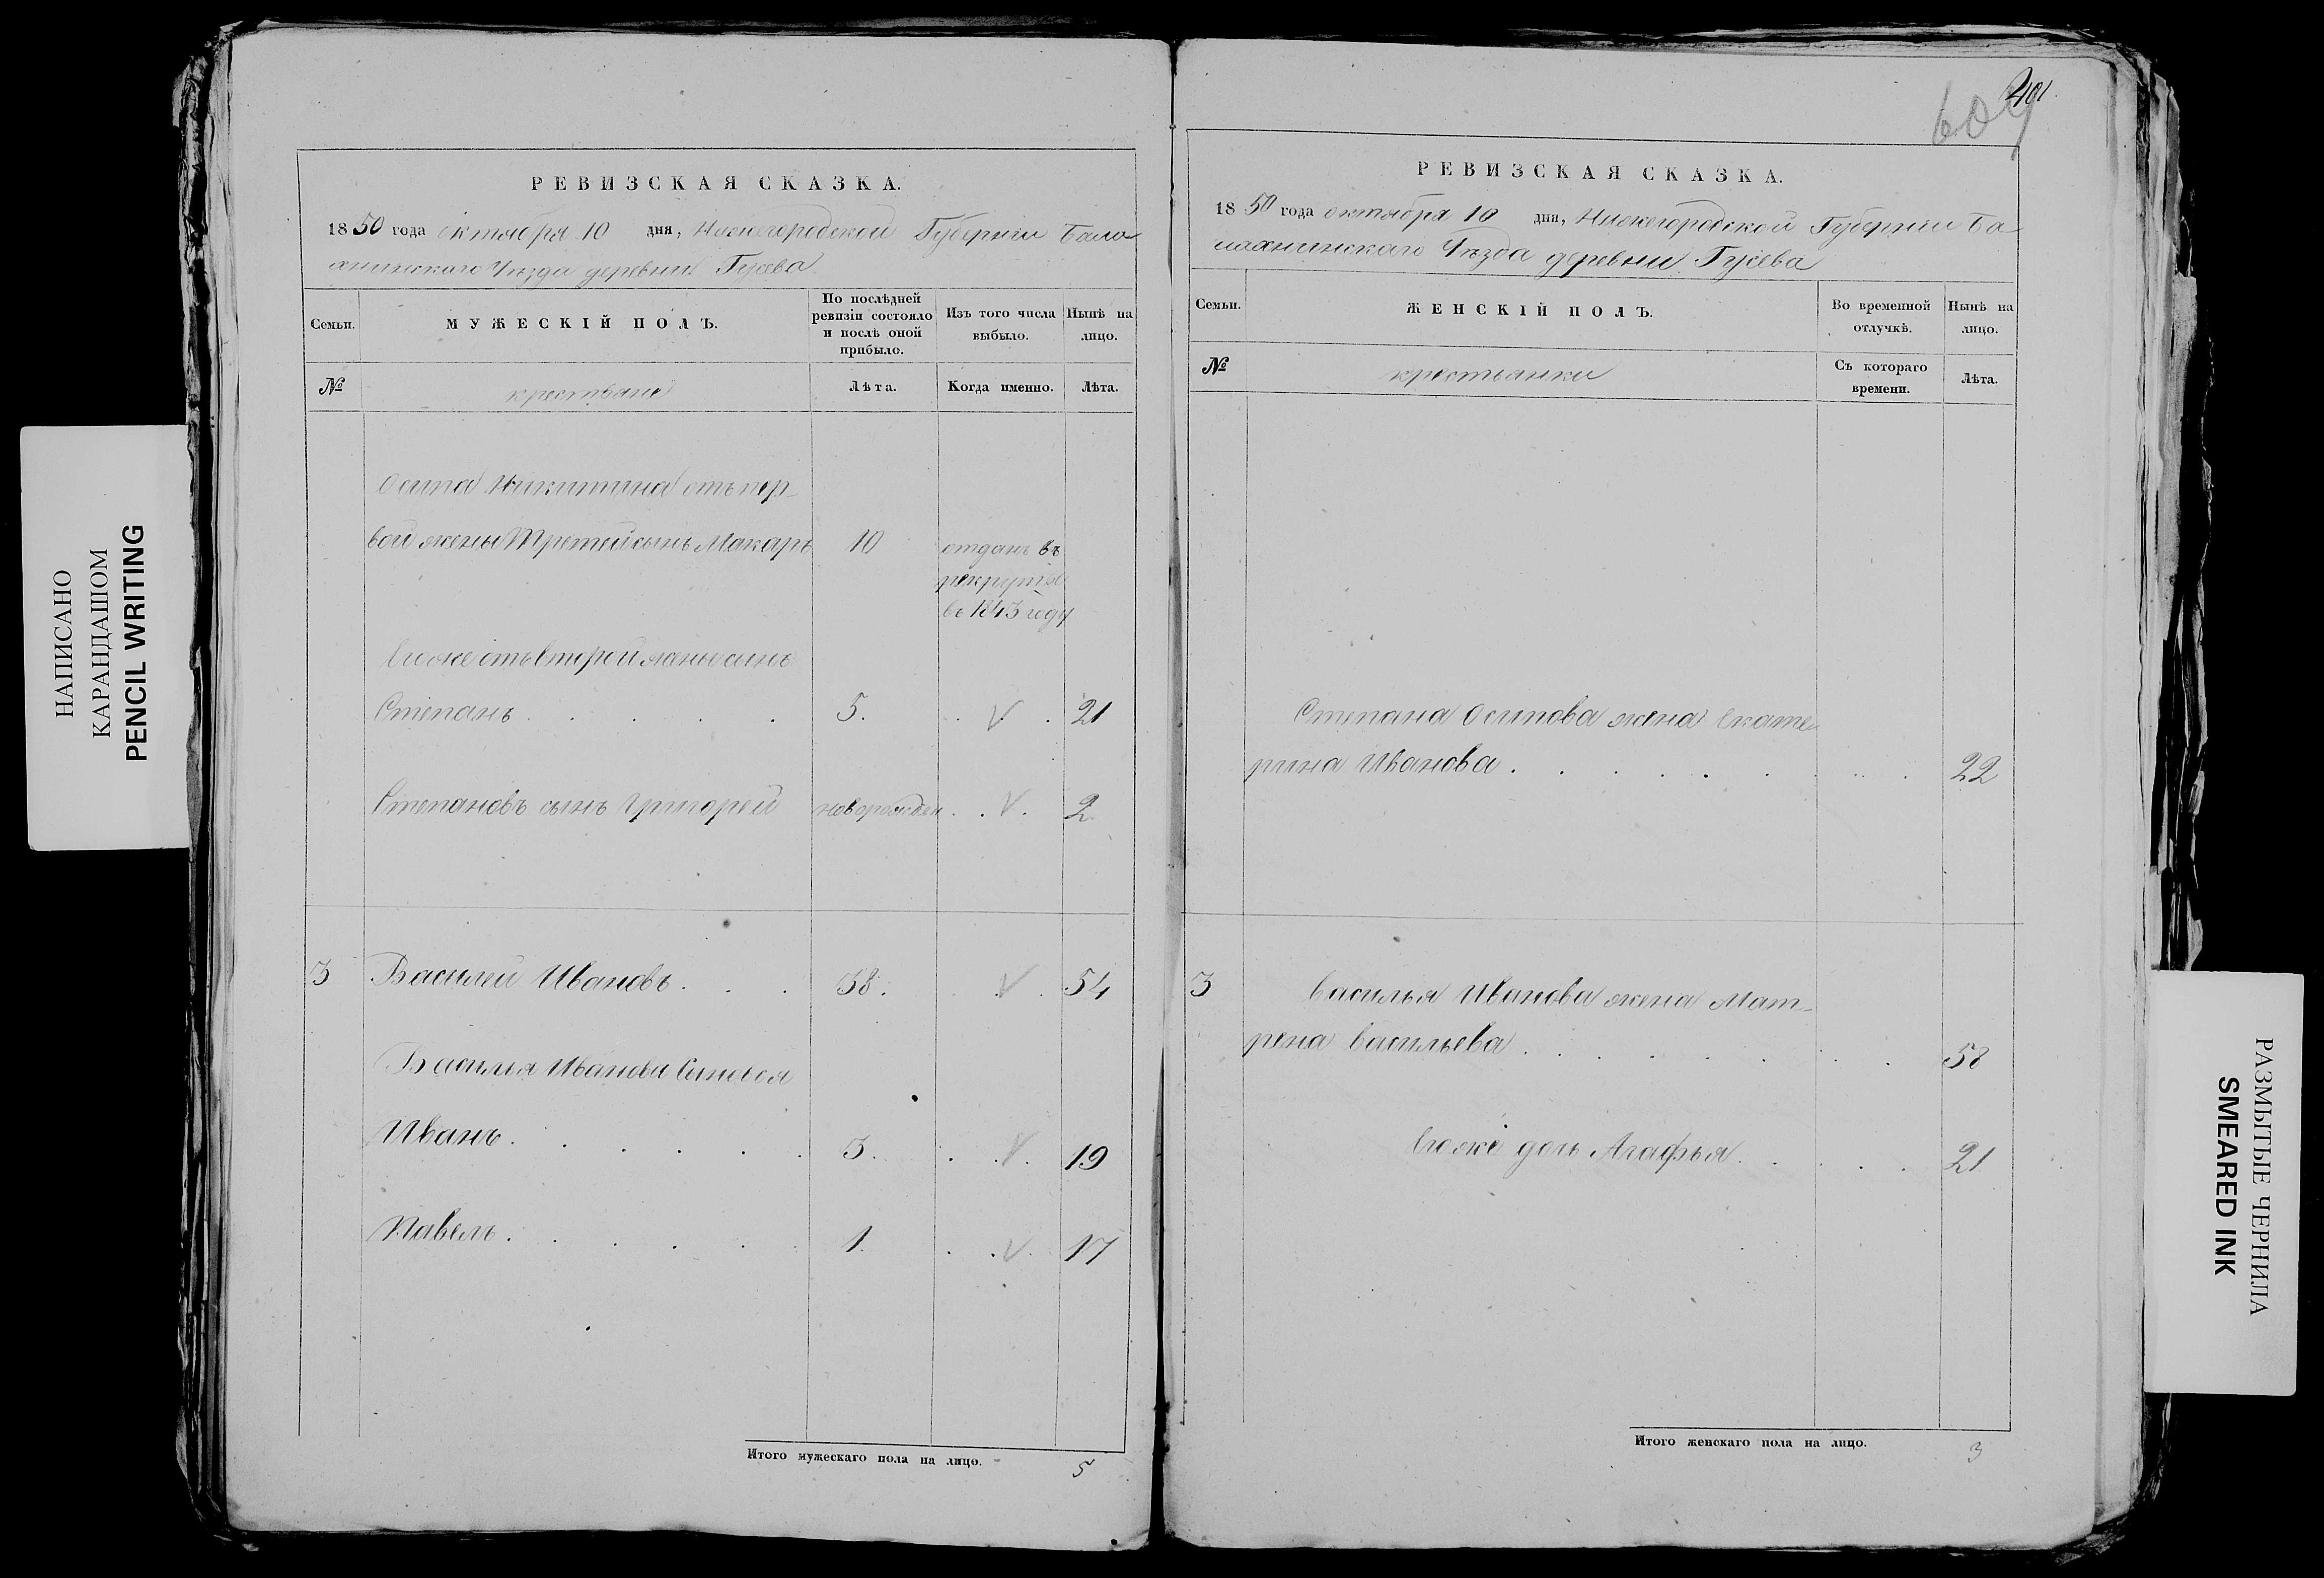 401.
609
РЕВИЗСКАЯ СКАЗКА.
1850 года октября 10 дня, Нижегородской Губерніи Бала
хнинскаго Уѣзда деревни Гусева
Семьи.
МУЖЕСКІЙ ПОЛЪ.
По послѣдней ревизіи состояло и послѣ оной прибыло.
Изъ того числа выбыло.
Нынѣ на лицо.
№
крестьяне
Лѣта.
Когда именно.
Лѣта.
Осипа Никитина отъ пер-
вой жены Третей сынъ Макаръ 10 отданъ въ
рекруты
въ 1843 году
Егоже отъ второй жены сынъ
Степанъ . . . . . 5. . V . 21
Степановъ сынъ Григорей новорожден . . V . 2
3 Василей Ивановъ . . . 38. . V . 54
Василья Иванова Сыновья
Иванъ . . . . . . 3. . . V . 19
Павелъ . . . . . . 1. . . V . 17
Итого мужескаго пола на лицо. 5
РЕВИЗСКАЯ СКАЗКА.
1850 года октября 10 дня, Нижегородской Губерніи Ба-
лахнинскаго Уѣзда деревни Гусева
Семьи.
ЖЕНСКІЙ ПОЛЪ.
Во временной отлучкѣ.
Нынѣ на лицо.
№
крестьянки
Съ котораго времени.
Лѣта.
Степана Осипова жена Екате
рина Иванова . . . . . . . . 22
3 Василья Иванова жена Мат-
рена Васильева . . . . . . . . 58
Егоже дочь Агафья . . . . . 21
Итого женскаго пола на лицо. 3
НАПИСАНО
КАРАНДАШОМ
PENCIL WRITING
РАЗМЫТЫЕ ЧЕРНИЛА
SMEARED INK